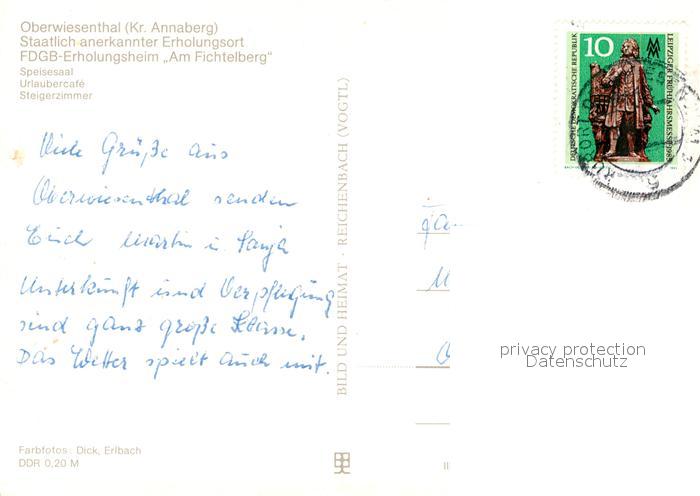 Oberwiesenthal (Kr. Annaberg)
Staatlich anerkannter Erholungsort
FDGB-Erholungsheim „Am Fichtelberg"
Speisesaal
Urlaubercafé
Steigerzimmer
Viele Grüße aus
Oberwiesenthal senden
Euch Martin u.
Unterkünft und Verpflegung
sind ganz große Klasse.
Das Wetter spielt auch mit.
Farbfotos: Dick, Erlbach
DDR 0,20 M
BILD UND HEIMAT · REICHENBACH (VOGTL)
DEUTSCHE DEMOKRATISCHE REPUBLIK
10
LEIPZIGER FRÜHJAHRSMESSE 1985
privacy protection
Datenschutz